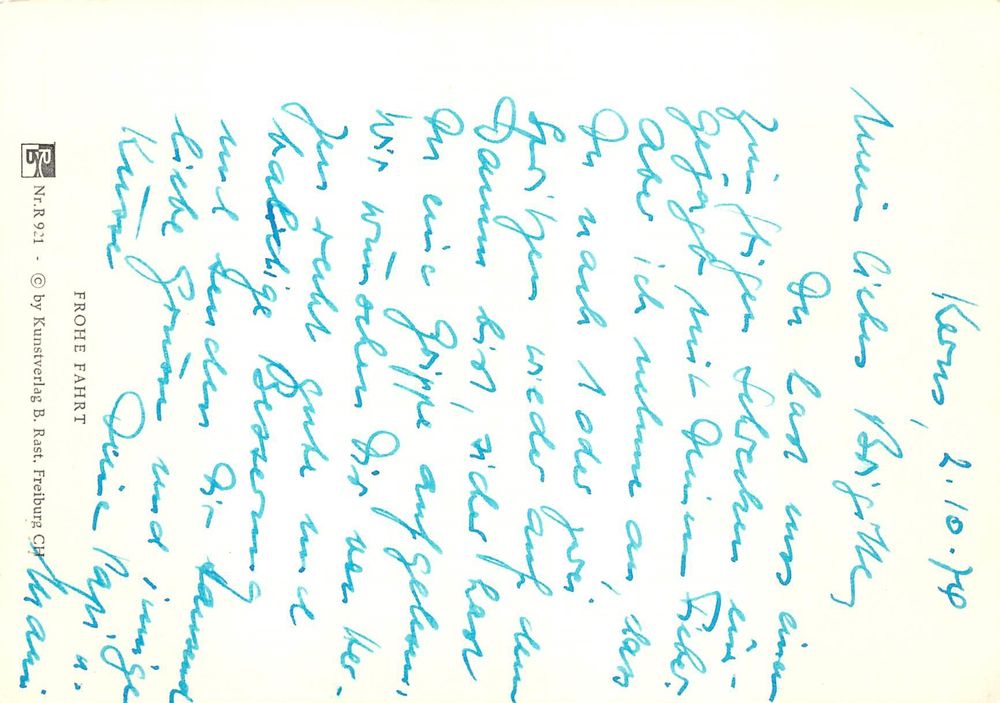 Kerns, 2.10.74
Mein liebes Brigittly
Du hast uns einen
zünftigen Schrecken ein-
gejagt mit Deinem Fieber
aber ich nehme an, dass
Du nach 1 oder zwei
Spritzen wieder auf dem
Damm bist, sicher hast
Du eine Grippe aufgelesen,
Wir wünschen Dir von Her-
zen recht gute und
baldige Besserung
und senden Dir tausend
liebe Grüsse und innige
Küsse Deine Papi u.
Mami
FROHE FAHRT
Nr. R 921 - © by Kunstverlag B. Rast, Freiburg CH